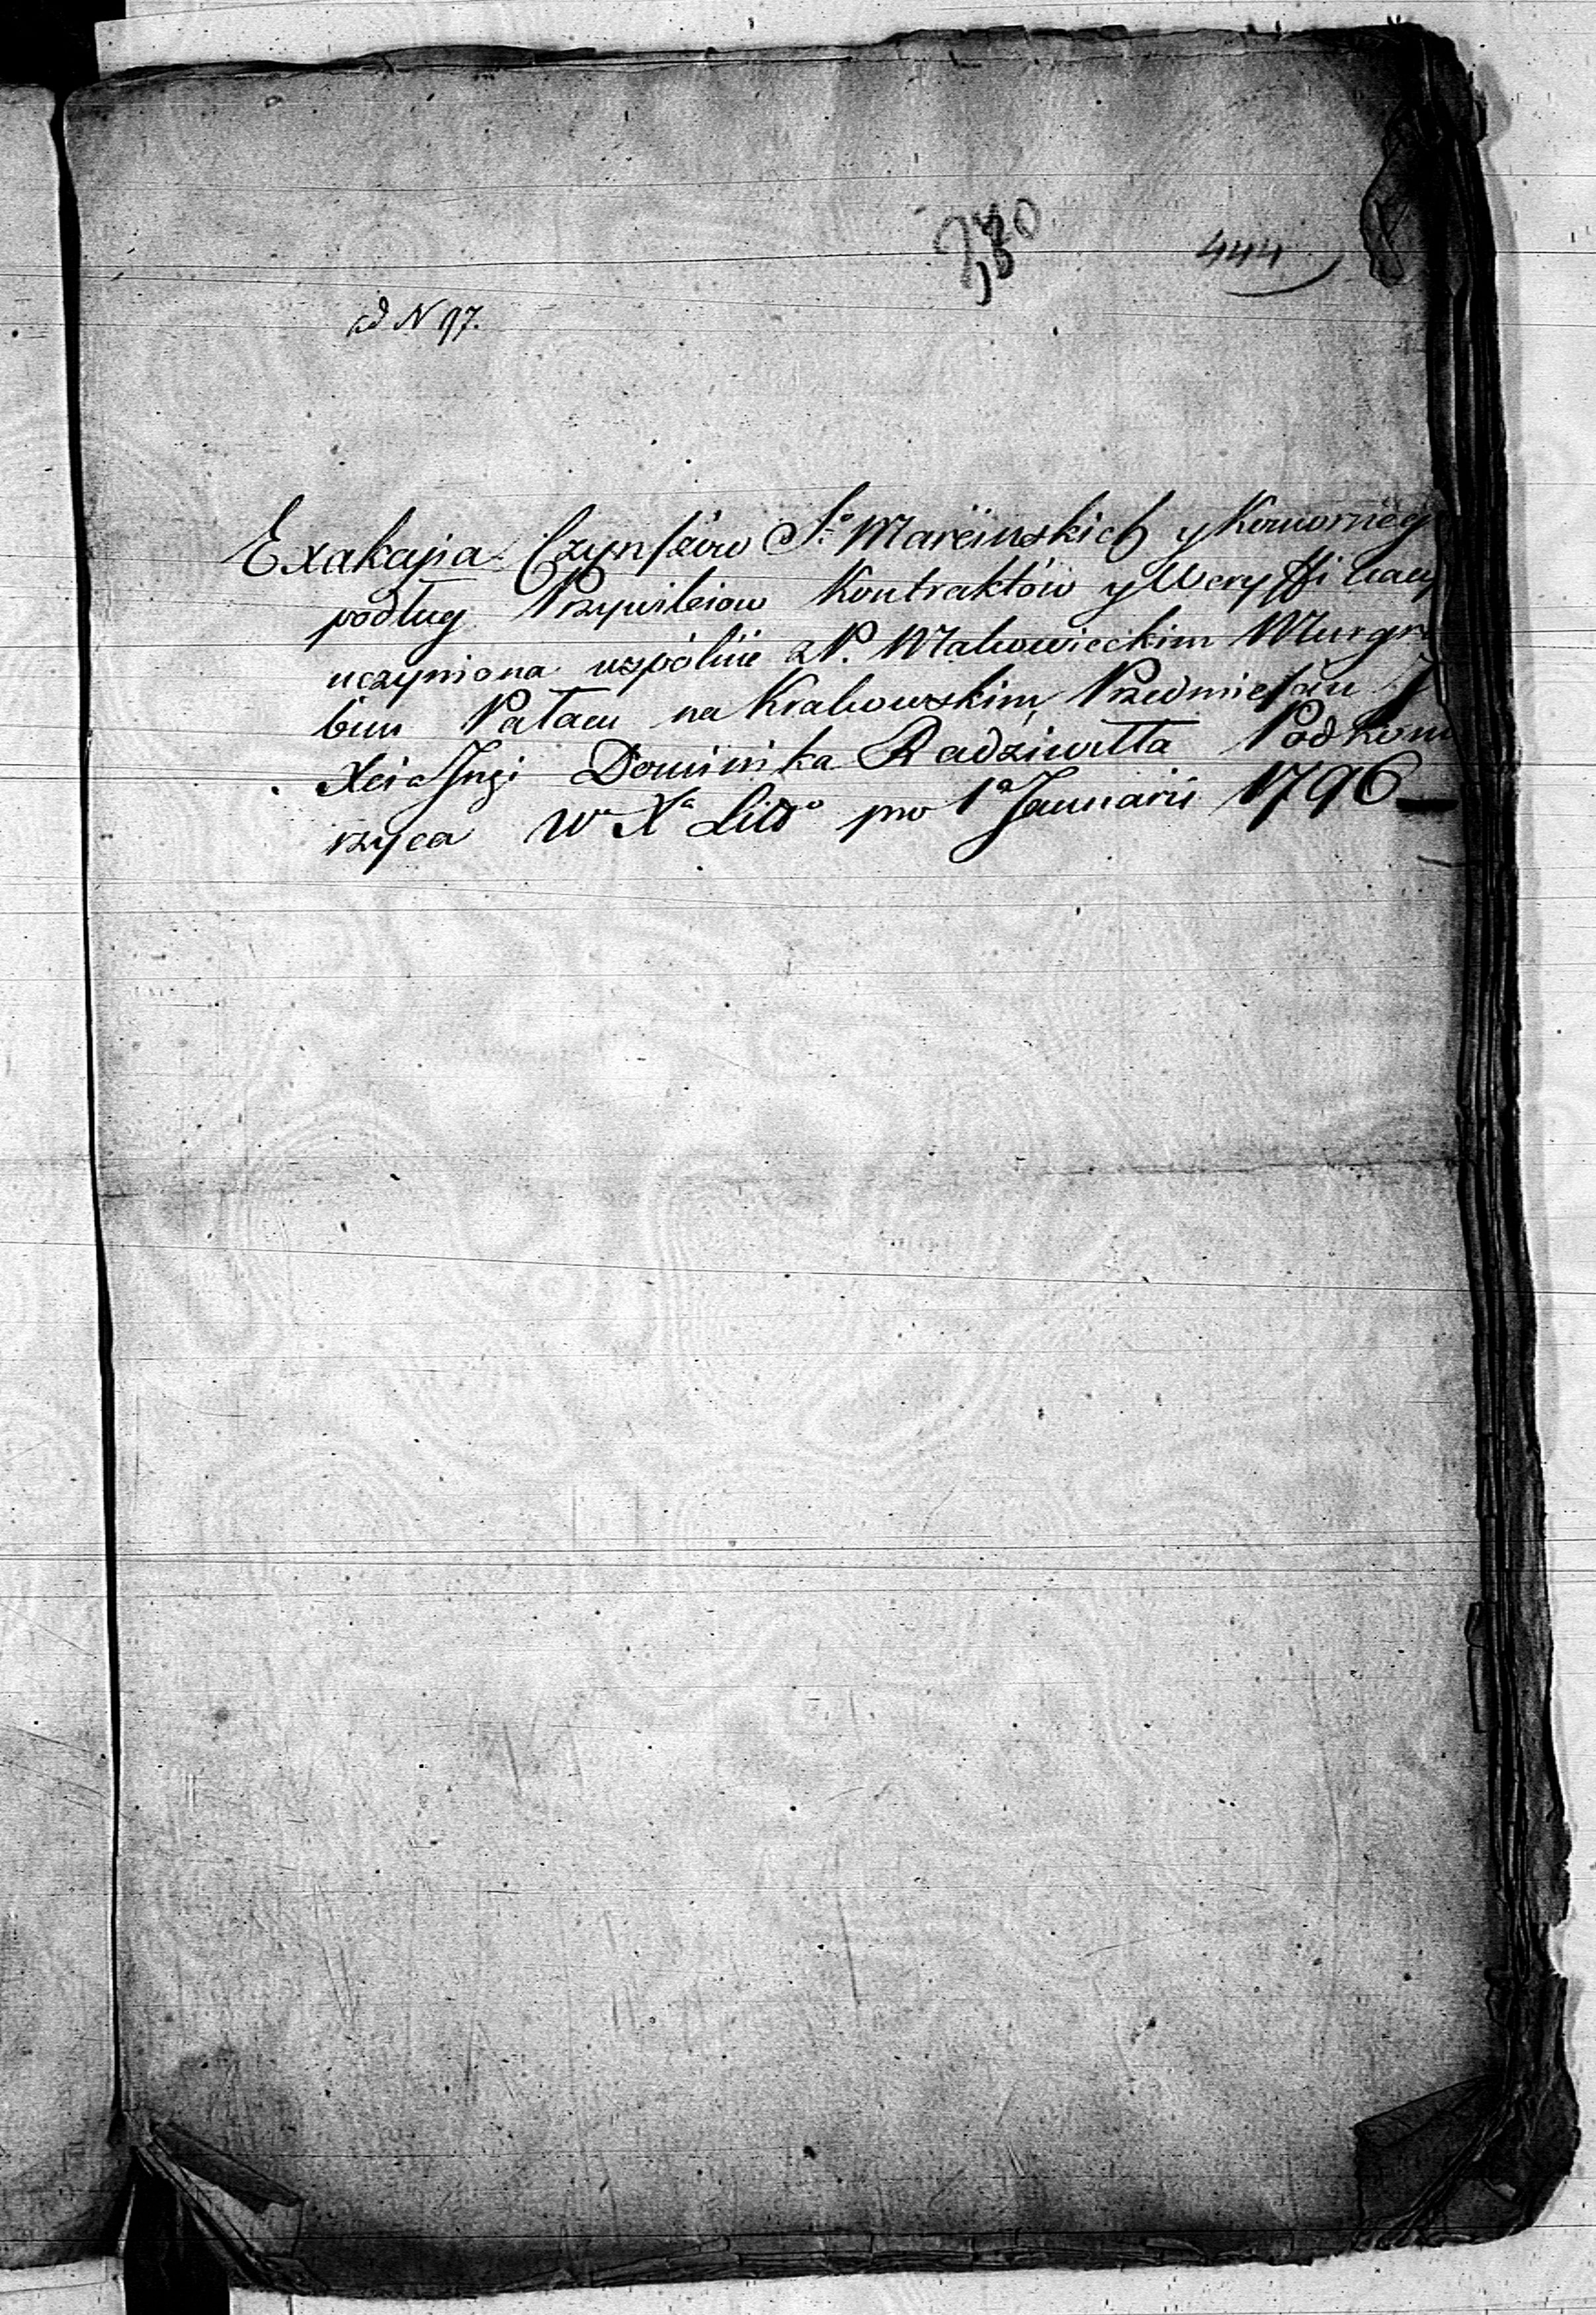 444
ad N 97.
Exakcyia Czynszów S:o Marcinskich y Komornego
podług Przywileiow Kontraktów y Weryffikacyi
uczyniona wspólnie z P. Makowieckim Murgra
bim Pałacu na Krakowskim Przedmieściu J
Xcia Jmci Dominika Radziwiłła Podkomo
rzyca W. X.a Litt.o pro 1.a Januarii 1796